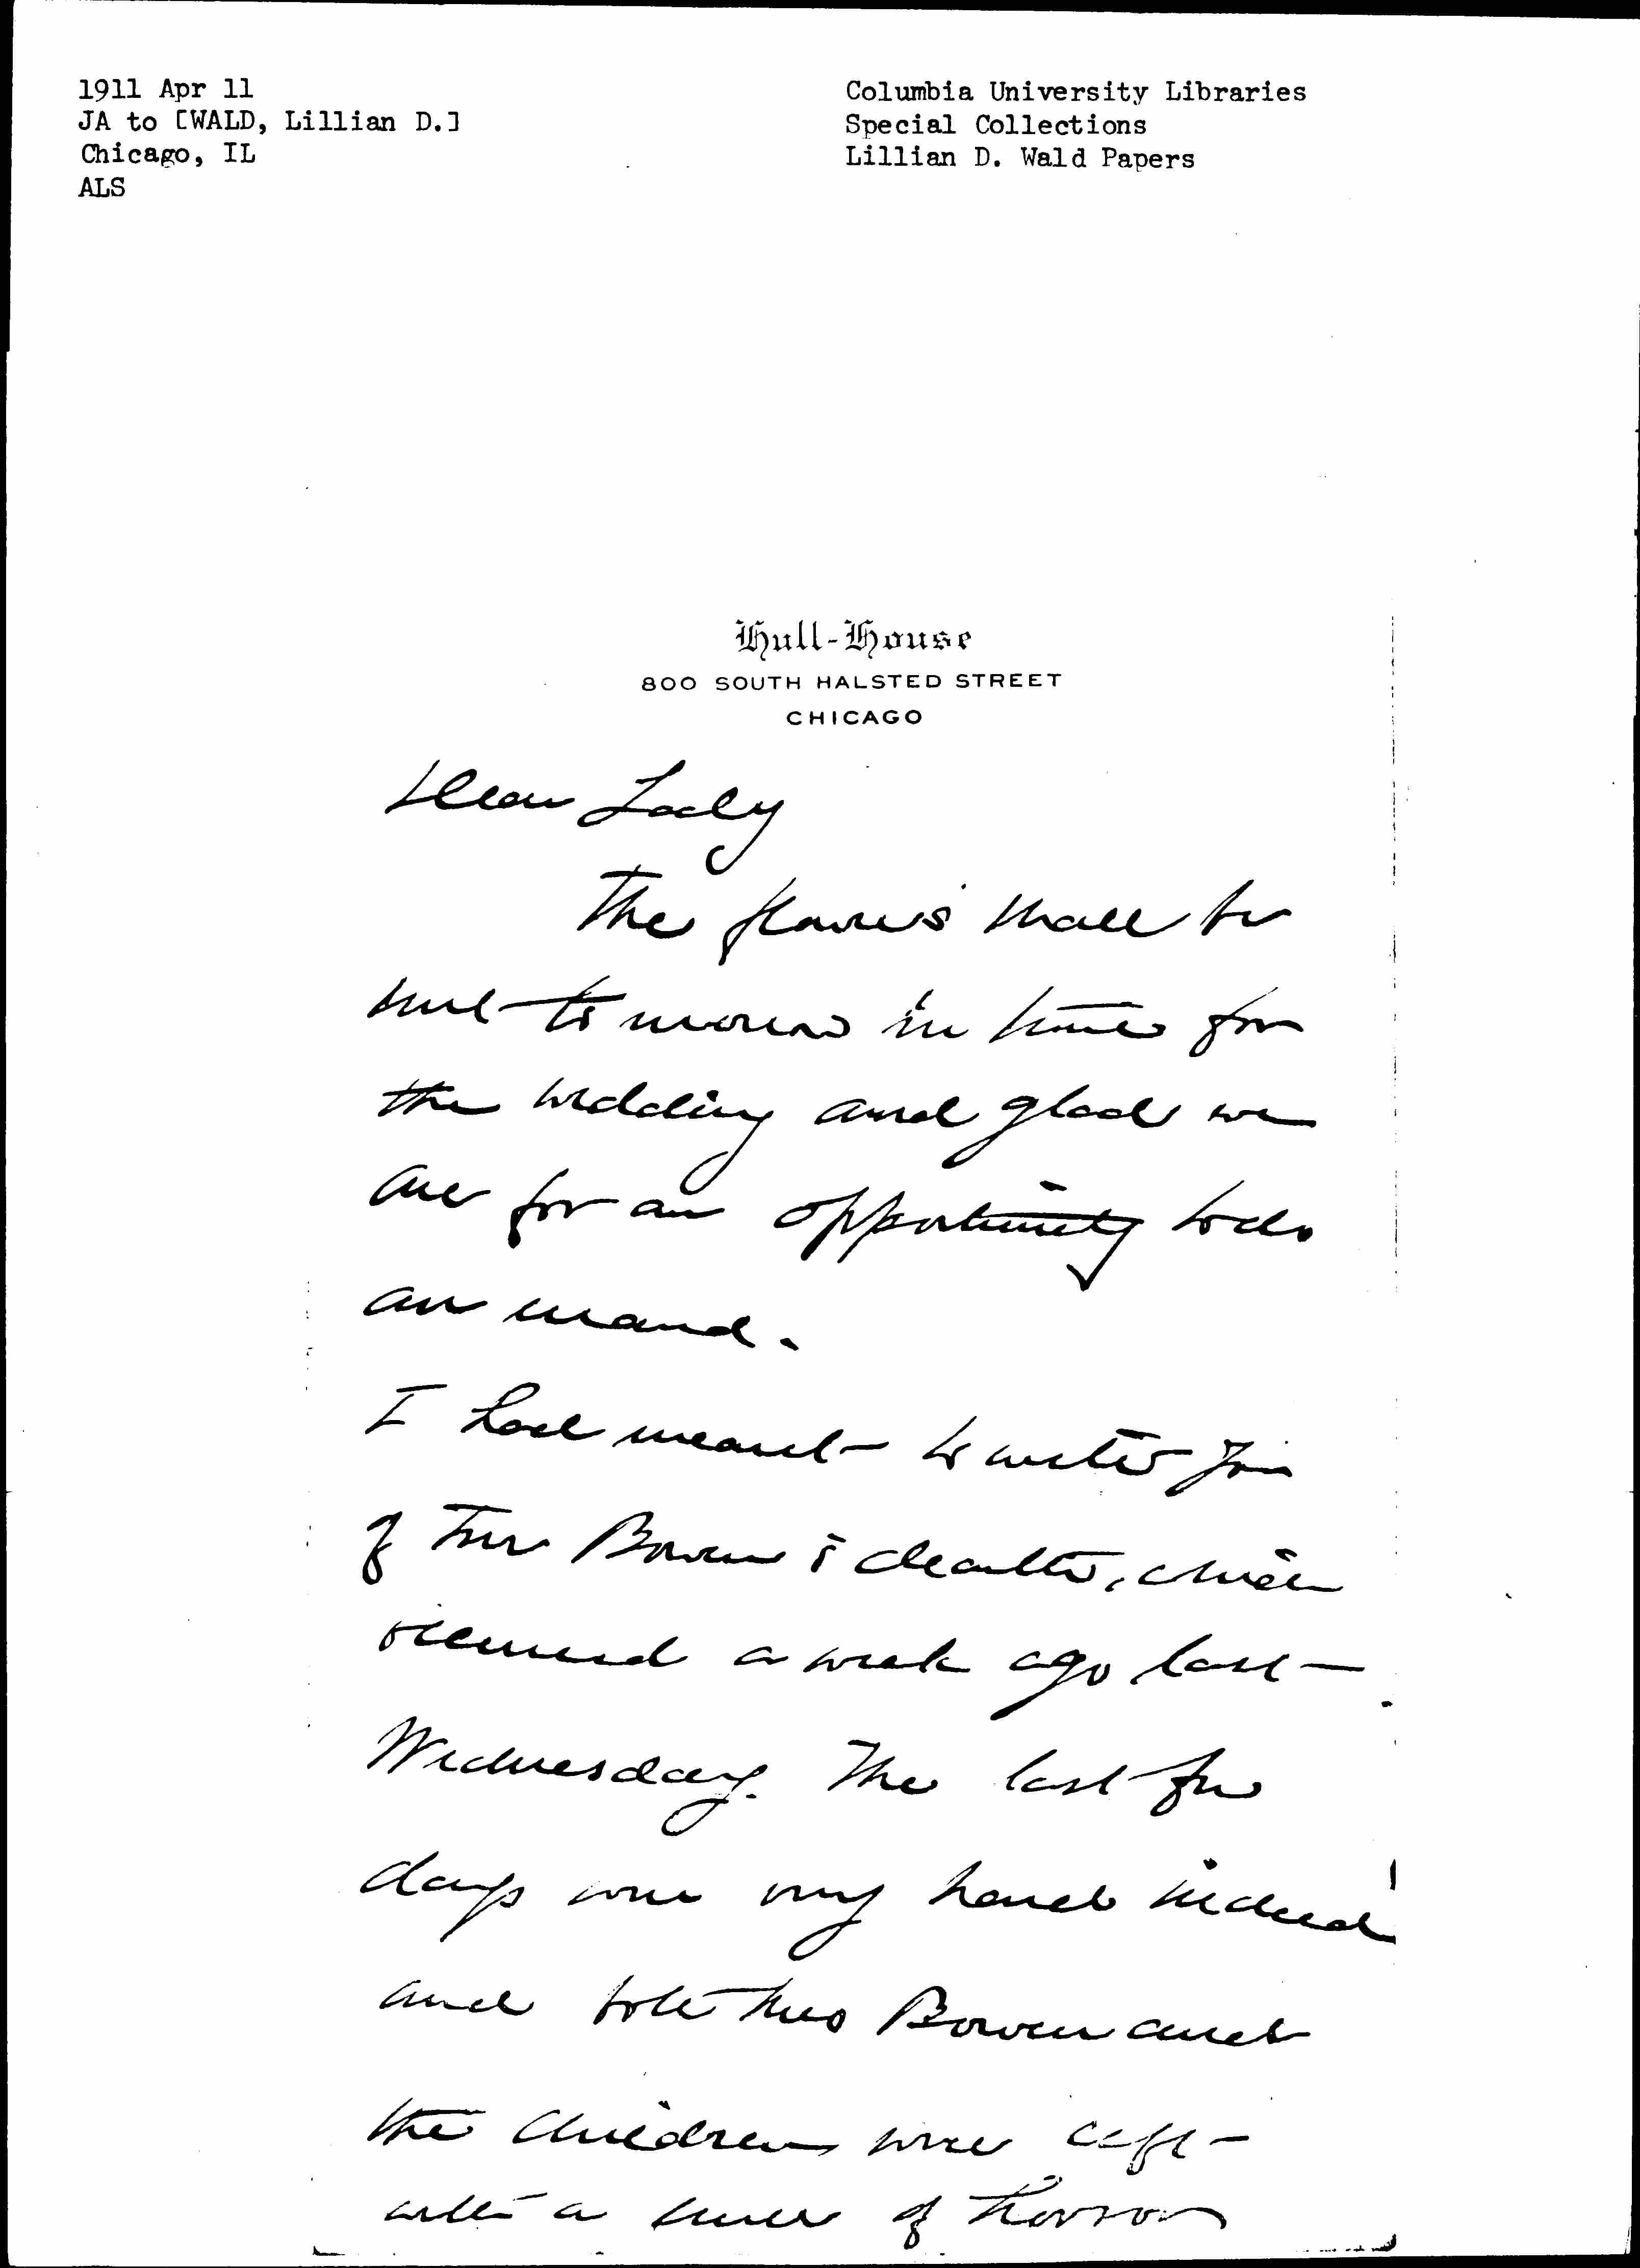 1911 Apr 11
JA to [WALD, Lillian D.]
Chicago, IL
ALS
Columbia University Libraries
Special Collections
Lillian D. Wald Papers
Hull-House
800 SOUTH HALSTED STREET
CHICAGO
Dear Lady
The flowers shall be
sent to morrow in time for
the wedding and glad we
are for an opportunity to do
an errand.
I had meant to write you
of Mr Bowen's death, which
occurred a week ago last
Wednesday. The last few
days were very hard indeed
and both Mrs Bowen and
the children were left
with a sense of horror